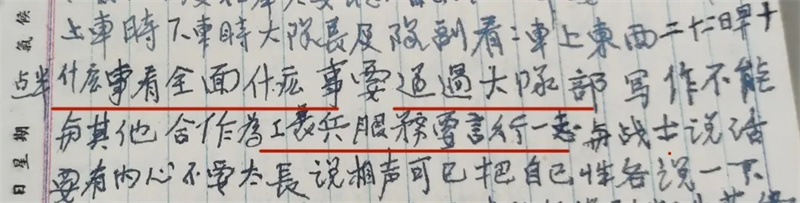 上車時下車時大隊長及隊副看：車上東西二十二日早十
点半什庅事看全面什庅事要通過大隊部写作不能
与其他合作為工農兵服務要言行一志与战士说话
要有内心不要太長说相声可已把自己性各说一下
氣候
日星期